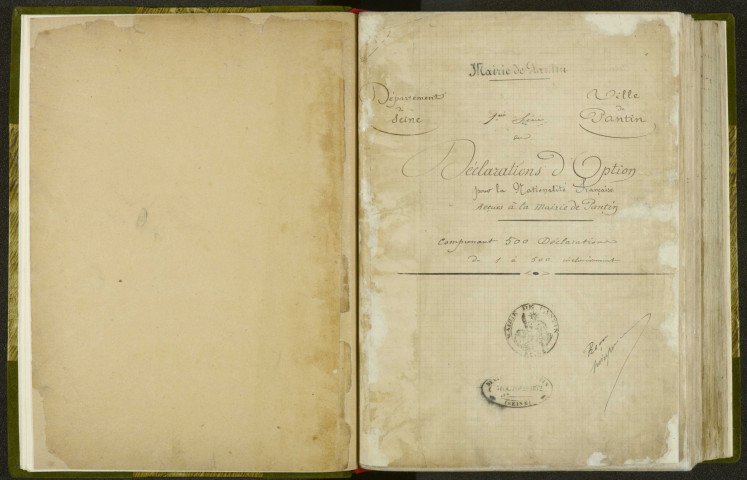 Mairie de Pantin
Département
de
Seine
Ville
de
Pantin
1er Série
des
Déclarations d'Option
pour la Nationalité Française
reçues à la Mairie de Pantin
Comprenant 500 Déclarations
de 1 à 500 inclusivement
MAIRIE DE PANTIN
(SEINE)